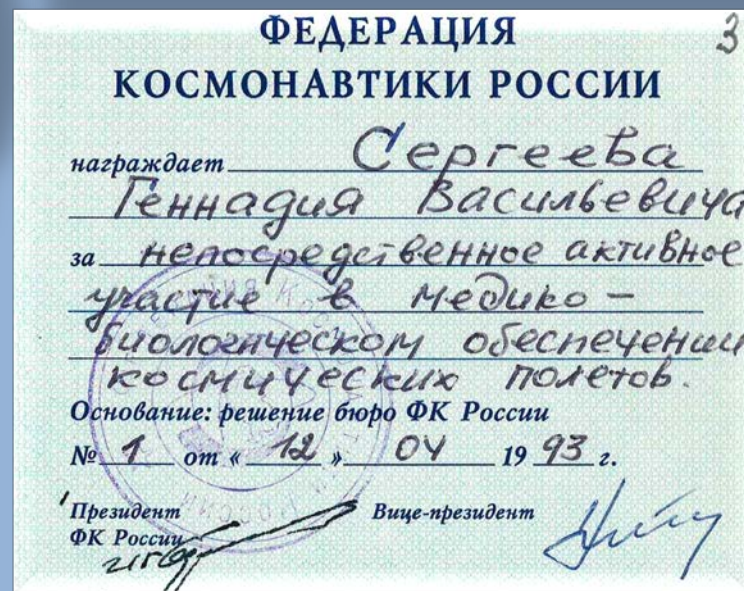 3
ФЕДЕРАЦИЯ
КОСМОНАВТИКИ РОССИИ
награждает Сергеева
Геннадия Васильевича
за непосредственное активное
участие в медико-
биологическом обеспечении
космических полетов.
Основание: решение бюро ФК России
№ 1 от « 12 » 04 19 93 г.
Президент Вице-президент
ФК России